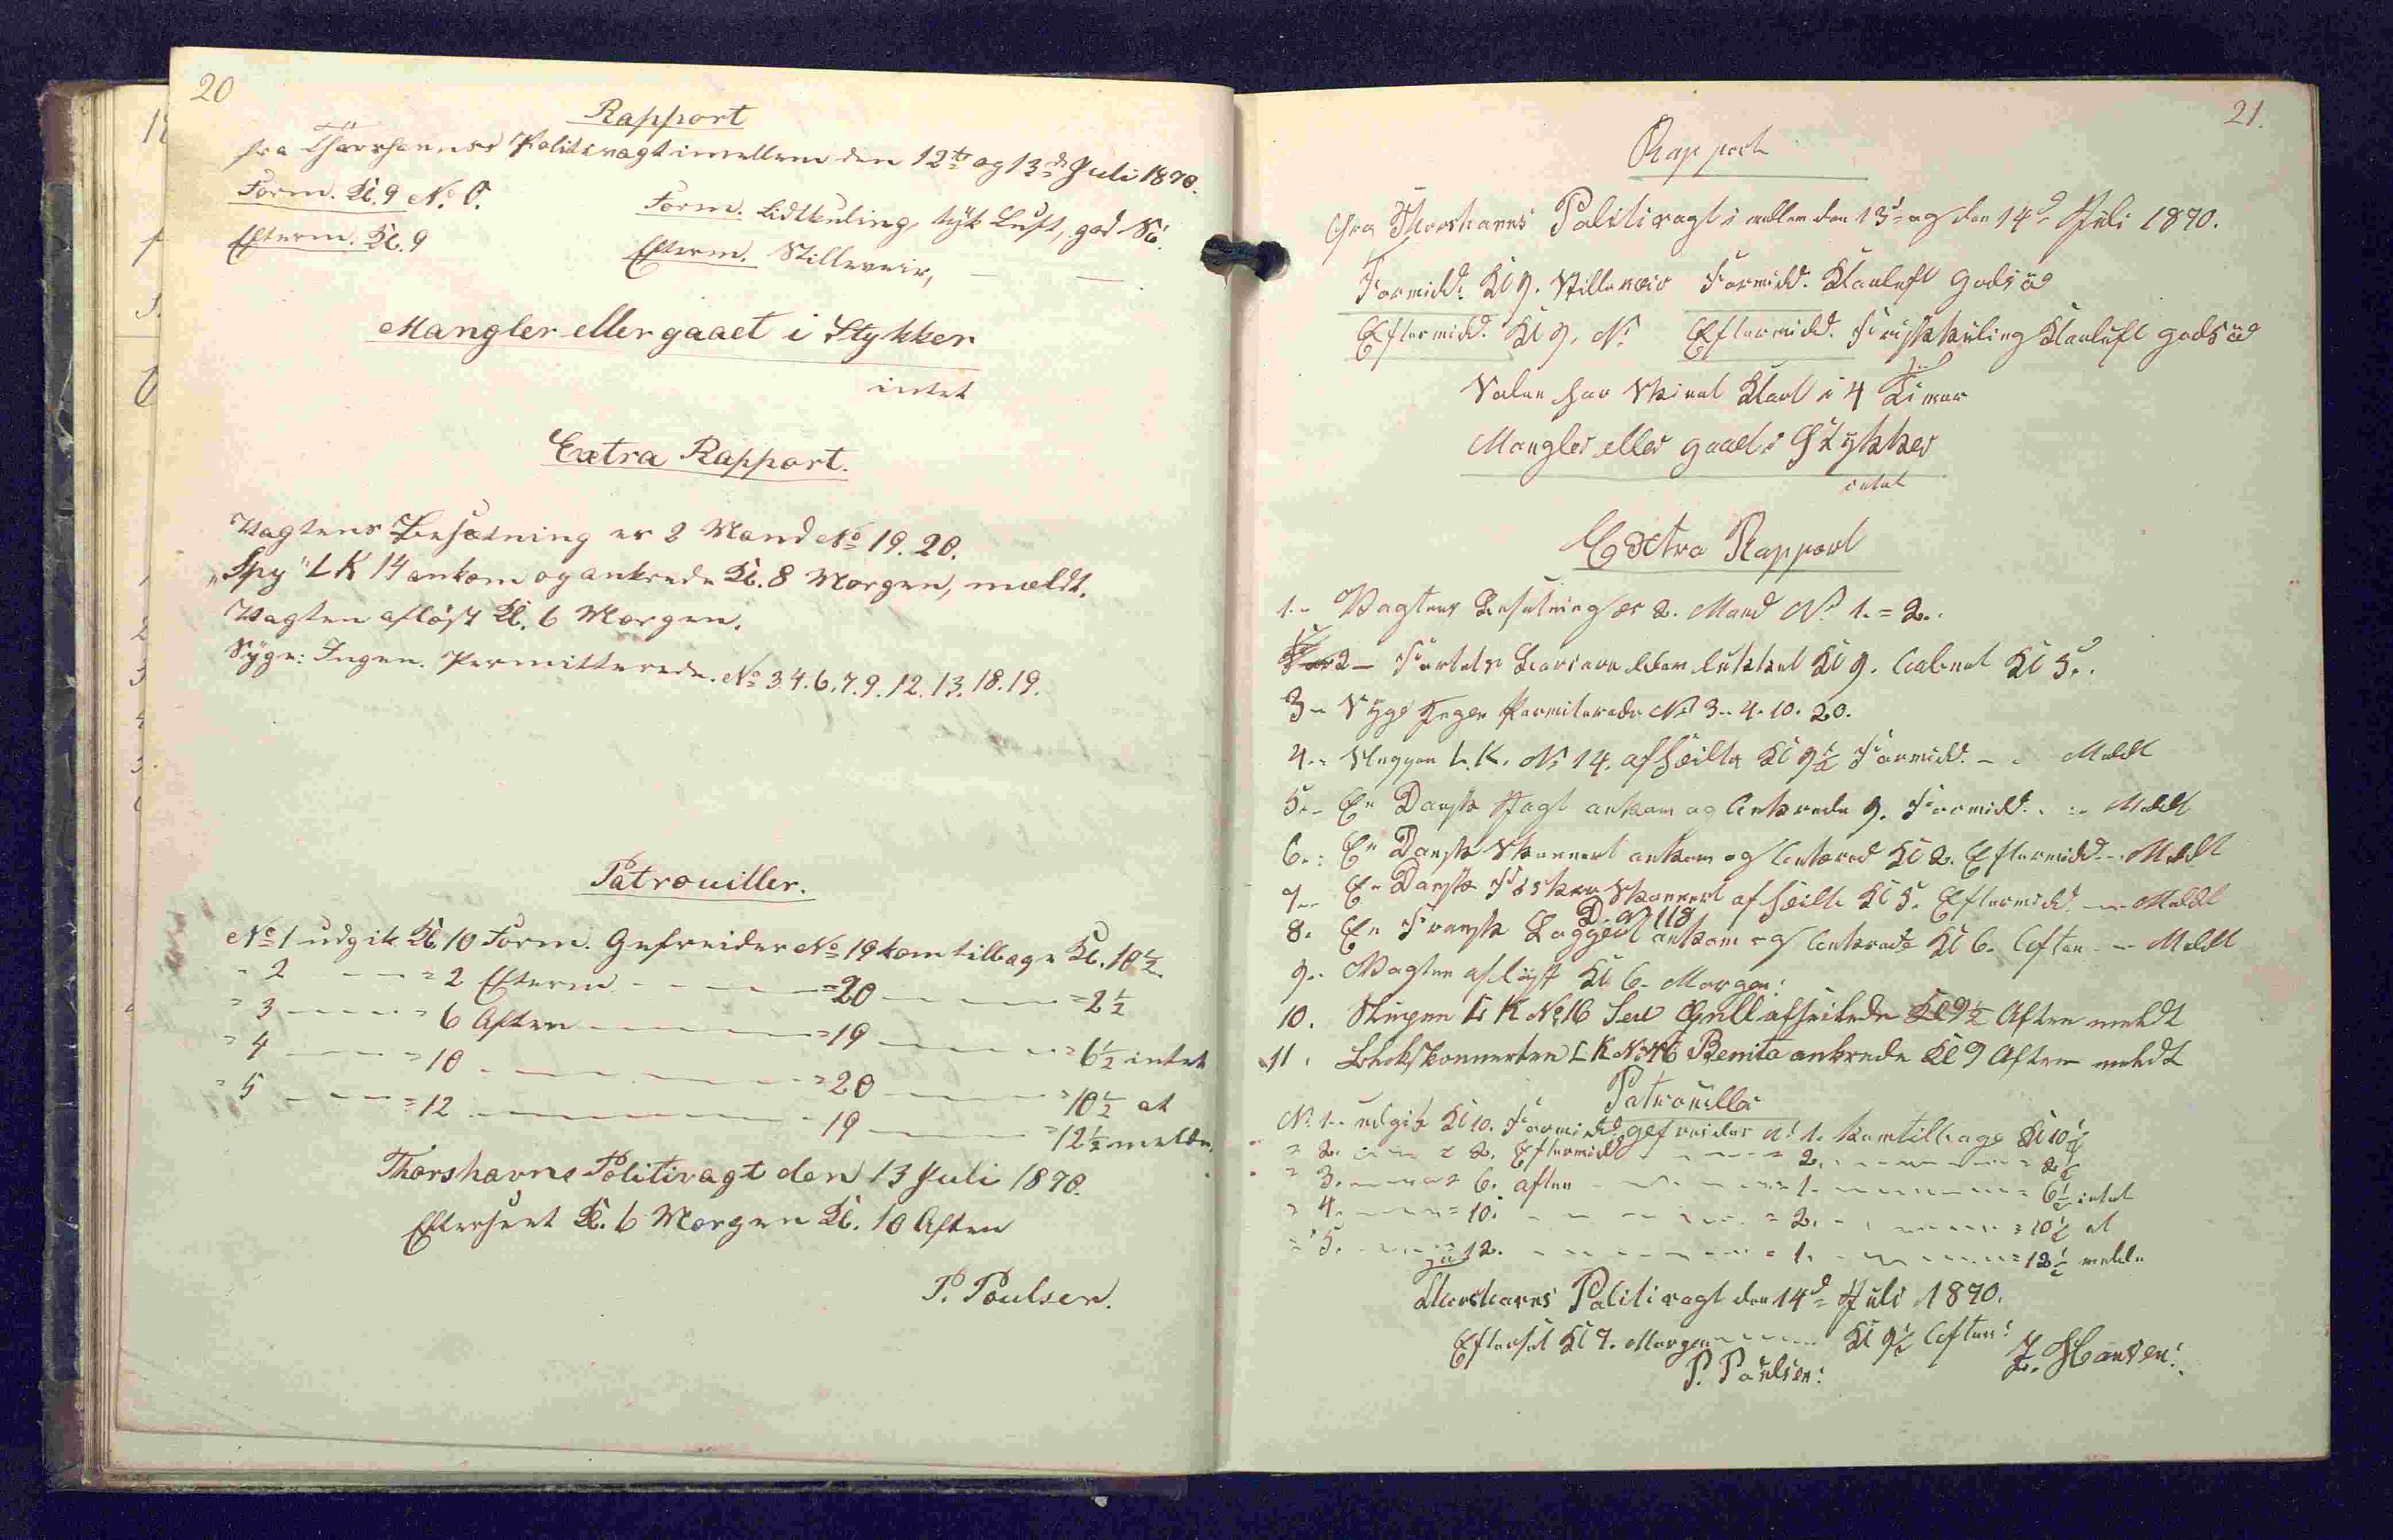 20
Rapport
fra Thorshavns Politivagt imellem den 12te og 13de Juli 1870.
Form. Kl. 9 N. O. Form. Lidt kuling, tyk Luft, god Sö.
Efterm. Kl. 9 Efterm. Stilleveir, — —
Mangler eller gaaet i Stykker
intet
Extra Rapport.
Vagtens Besætning er 2 Mand No 19. 20.
„Spy" L K 14 ankom og ankrede Kl. 8 Morgen, meldt.
Vagten aflöst Kl. 6 Morgen.
Syge: Ingen. Permitterede. No 3. 4. 6. 7. 9. 12. 13. 18. 19.
Patrouiller.
No 1 udgik Kl 10 Form. Gefreider No 19 kom tilbage Kl. 10½.
" 2 — — = 2 Efterm. — — — = 20 — — = 2½
= 3 — — = 6 Aften — — — = 19 — — = 6½ intet
= 4 — — = 10 — — — = 20 — — = 10½ at
= 5 — — = 12 — — — 19 — — = 12½ melde.
Thorshavns Politivagt den 13 Juli 1870.
Efterseet Kl. 6 Morgen Kl. 10 Aften
P. Poulsen.
21.
Rapport
Fra Thorshavns Politivagt i mellem den 13d og den 14d Juli 1870.
Formidd. Kl 9. Stilleveir Formidd. Klarluft god sö
Eftermidd. Kl 9. N. Eftermidd. Frisk kuling Klarluft god sö
Solen har Skinet Klart i 4 Timer
Mangler eller gaaet i Stykker
intet
Extra Rapport
1. - Vagtens Besetning er 2. Mand No 1. = 2.
2 - Fortets Barriere blev lukket Kl 9. Aabnet Kl 5.
3 - Syge Ingen Permiterede No 3. 4. 10. 20.
4. - Sluppen L. K. No 14. afseilte Kl 9½ Formidd. - Meldt
5. - En Dansk Jagt ankom og Ankrede 9. Formidd. - Meldt
6. - En Dansk Skonnert ankom og Ankred Kl 2. Eftermidd. - Meldt
7. - En Dansk Fisker Skonnert afseilte Kl 5. Eftermidd. - Meldt
D. No 118
8. En Fransk Loggert ankom og Ankrede Kl 6. Aften - Meldt
9. - Vagten aflöst Kl 6. Morgen.
10. Slupen L K No 16 Grill afseilede Kl 9½ Aften meldt
11. Skonnerten L K No 46 Benita ankrede Kl 9 Aften meldt
Patrouiller
No 1. - udgik Kl 10. Formidd. gefreider No 1. kom tilbage Kl 10½
= 2. — = 2. Eftermidd. — — = 2. — — = 2½
= 3. — = 6. aften — — = 1. — — = 6½ intet
= 4. — = 10. — — = 2. — — = 10½ at
= 5. — 12. — — = 1. — — = 12½ melde
Thorshavns Politivagt den 14d Juli 1870.
Efterset Kl 7. Morgen — Kl 9½ Aften.
P. Poulsen. Z. Hansen.